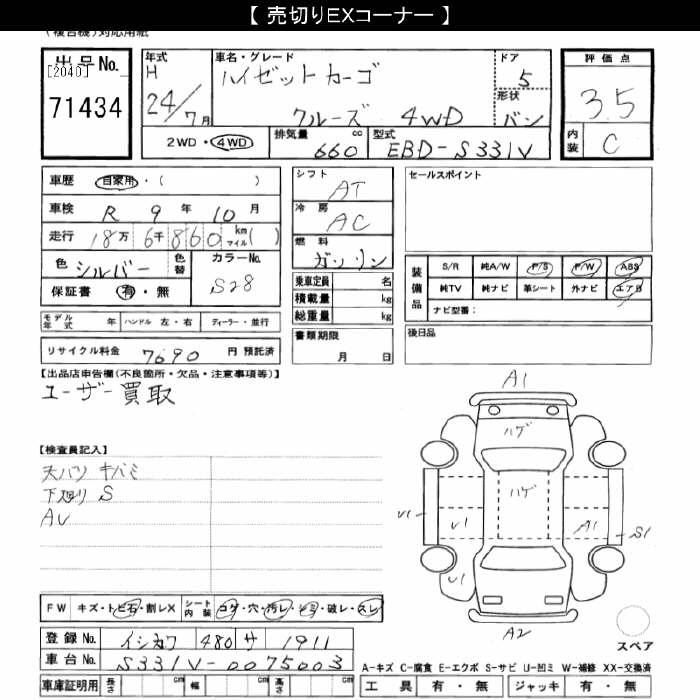 【 売切りEXコーナー 】
(複合機)対応用紙
出品No.
[2040]
71434
年式
H
24/7月
車名・グレード
ハイゼットカーゴ
クルーズ 4WD
ドア
5
形状
バン
評価点
3.5
内装 C
2WD・4WD
排気量 660 cc
型式 EBD-S331V
車歴 自家用・( )
車検 R 9 年 10 月
走行 18万 6千 860 km マイル( )
色 シルバー 色替
カラーNo. S28
保証書 有・無
シフト
AT
冷房
AC
燃料
ガソリン
乗車定員 名
積載量 kg
総重量 kg
書類期限
月 日
セールスポイント
装備品
S/R 純A/W P/S P/W ABS
純TV 純ナビ 革シート 外ナビ エアB
ナビ型番:
後日品
モデル年式 年 ハンドル 左・右 ディーラー・並行
リサイクル料金 7690 円 預託済
【出品店申告欄(不良箇所・欠品・注意事項等)】
ユーザー買取
【検査員記入】
天バリ キバミ
下廻り S
AU
A1
ハゲ
ハゲ
U1
U1
A1
S1
U1
A2
スペア
FW キズ・トビ石・割レX
シート内装 コゲ・穴・汚レ・シミ・破レ・スレ
登録No. イシカワ 480 サ 1911
車台No. S331V-0075003
車庫証明用 長さ 幅 高さ
A-キズ C-腐食 E-エクボ S-サビ U-凹ミ W-補修 XX-交換済
工具 有・無 ジャッキ 有・無